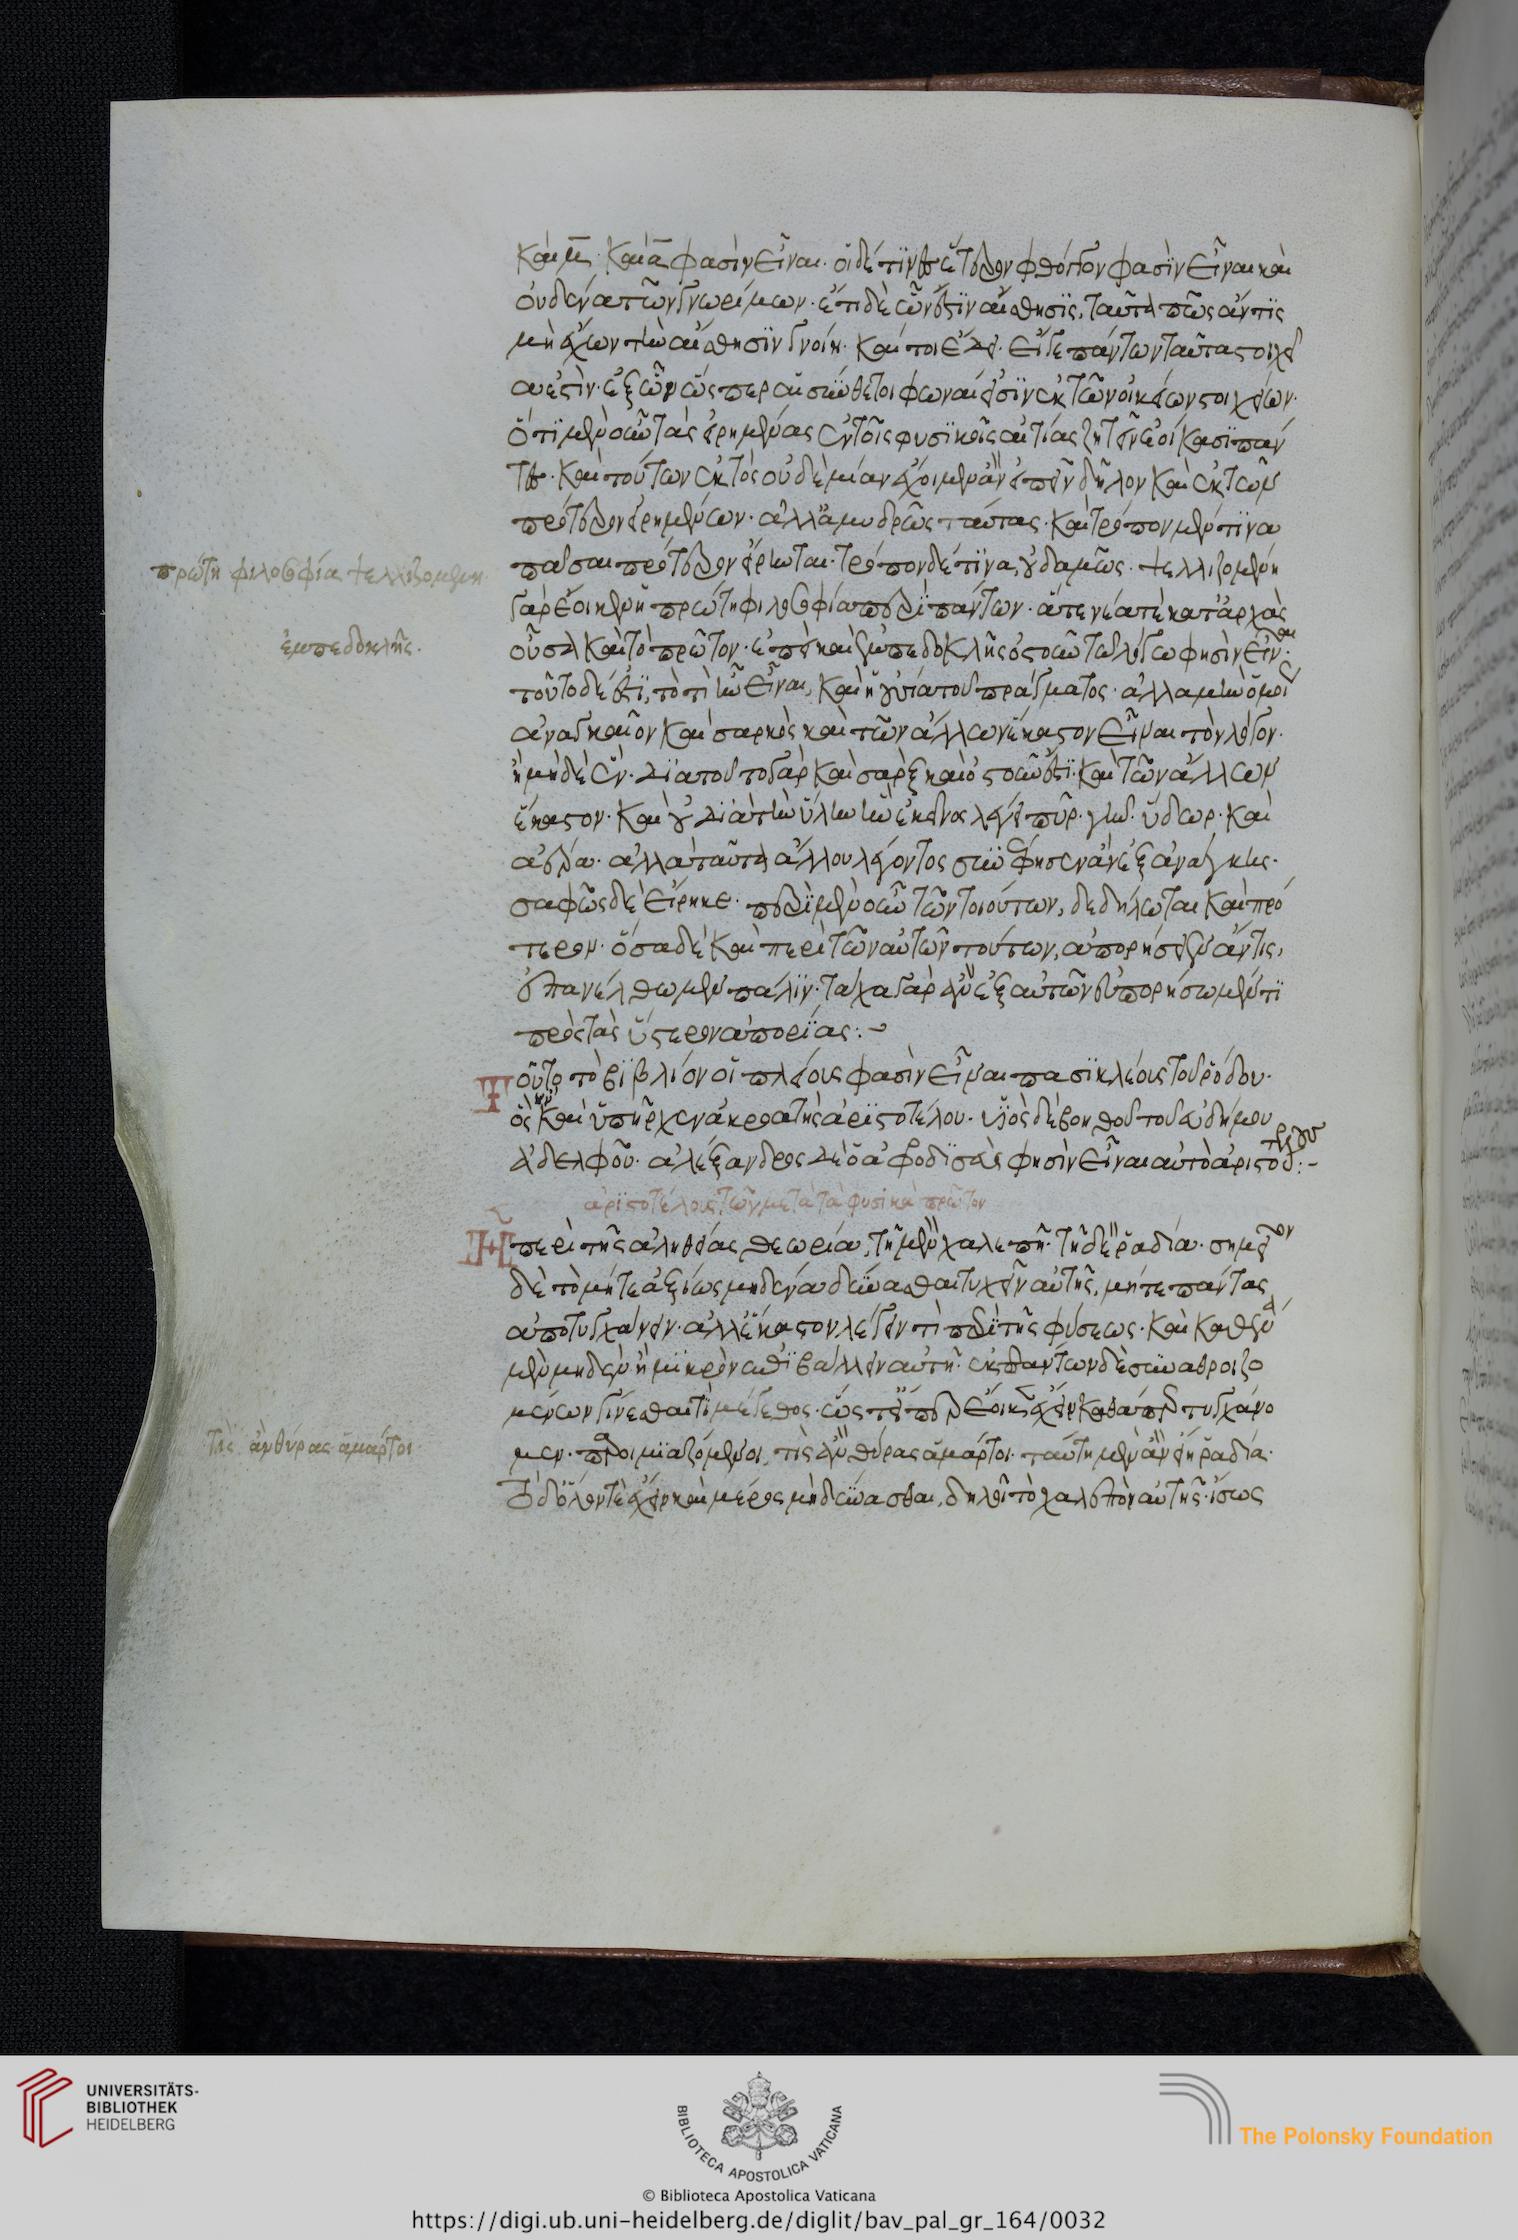 καὶ μ̅ καὶ α̅ φασὶν εἶναι· οἱ δέ τινες ἕτερον φθόγγον φασὶν εἶναι καὶ
οὐδένα τῶν γνωρίμων· ἔτι δὲ ὧν ἐστὶν αἴσθησις, ταῦτα πῶς ἄν τις
μὴ ἔχων τὴν αἴσθησιν γνοίη· καίτοι ἔδει· εἴγε πάντων ταῦτα στοιχεῖ
α ἐστὶν· ἐξ ὧν ὥσπερ αἱ σύνθετοι φωναί εἰσιν ἐκ τῶν οἰκείων στοιχείων·
ὅτι μὲν οὖν τὰς εἰρημένας ἐν τοῖς φυσικοῖς αἰτίας ζητεῖν ἐοίκασι πάν
τες· καὶ τούτων ἐκτὸς οὐδεμίαν ἔχοιμεν ἂν εἰπεῖν δῆλον καὶ ἐκ τῶν
πρότερον εἰρημένων· ἀλλ' ἀμυδρῶς ταύτας· καὶ τρόπον μέν τινα
πᾶσαι πρότερον εἴρηνται· τρόπον δέ τινα, οὐδαμῶς· ψελλιζομένη
πρώτη φιλοσοφία ψελλιζομένη
γὰρ ἔοικεν ἡ πρώτη φιλοσοφία περὶ πάντων· ἅτε νέα τε κατ' ἀρχὰς
ἐμπεδοκλῆς·
οὖσα καὶ τὸ πρῶτον· ἐπεὶ καὶ ἐμπεδοκλῆς ὀστοῦν τῷ λόγῳ φησὶν εἶναι·
τοῦτο δέ ἐστι, τὸ τί ἦν εἶναι, καὶ ἡ οὐσία τοῦ πράγματος· ἀλλὰ μὴν ὁμοί
ως ἀναγκαῖον καὶ σαρκὸς καὶ τῶν ἄλλων ἕκαστον εἶναι τὸν λόγον·
ἢ μηδὲ ἕν· διὰ τοῦτο γὰρ καὶ σὰρξ καὶ ὀστοῦν ἐστι· καὶ τῶν ἄλλων
ἕκαστον· καὶ οὐ διὰ τὴν ὕλην ἣν ἐκεῖνος λέγει πῦρ· γῆν· ὕδωρ· καὶ
ἀέρα· ἀλλὰ ταῦτα ἄλλου λέγοντος συνέφησεν ἂν ἐξ ἀνάγκης·
σαφῶς δὲ εἴρηκε· περὶ μὲν οὖν τῶν τοιούτων, δεδήλωται καὶ πρό
τερον· ὅσα δὲ καὶ περὶ τῶν αὐτῶν τούτων, ἀπορήσειεν ἄν τις,
ἐπανέλθωμεν πάλιν· τάχα γὰρ ἂν ἐξ αὐτῶν εὐπορήσωμέν τι
πρὸς τὰς ὕστερον ἀπορίας:-
Τοῦτο τὸ βιβλίον οἱ πλείους φασὶν εἶναι πασικλέους τοῦ ῥοδίου·
ὃς καὶ ὑπῆρχεν ἀκροατὴς ἀριστοτέλους· υἱὸς δὲ βοηθοῦ τοῦ εὐδήμου
ἀδελφοῦ· ἀλέξανδρος δὲ ὁ ἀφροδισιεὺς φησὶν εἶναι αὐτὸ ἀριστοτέλους:-
ἀριστοτέλους τῶν μετὰ τὰ φυσικὰ πρῶτον
Ἡ περὶ τῆς ἀληθείας θεωρία, τῇ μὲν χαλεπῆ· τῇ δὲ ῥᾳδία· σημεῖον
δὲ τὸ μήτε ἀξίως μηδένα δύνασθαι τυχεῖν αὐτῆς, μήτε πάντας
ἀποτυγχάνειν· ἀλλ' ἕκαστον λέγειν τι περὶ τῆς φύσεως· καὶ καθ' ἕνα
μὲν μηδὲν ἢ μικρὸν ἐπιβάλλειν αὐτῇ· ἐκ πάντων δὲ συναθροιζο
μένων γίνεσθαί τι μέγεθος· ὥστ' εἴπερ ἔοικεν ἔχειν καθάπερ τυγχάνο
τίς ἂν θύρας ἁμάρτοι·
μεν· παροιμιαζόμενοι, τίς ἂν θύρας ἁμάρτοι· ταύτῃ μὲν ἂν εἴη ῥᾳδία·
τὸ δ' ὅλον τι ἔχειν καὶ μέρος μὴ δύνασθαι, δηλοῖ τὸ χαλεπὸν αὐτῆς· ἴσως
UNIVERSITÄTS-
BIBLIOTHEK
HEIDELBERG
BIBLIOTECA APOSTOLICA VATICANA
The Polonsky Foundation
© Biblioteca Apostolica Vaticana
https://digi.ub.uni-heidelberg.de/diglit/bav_pal_gr_164/0032